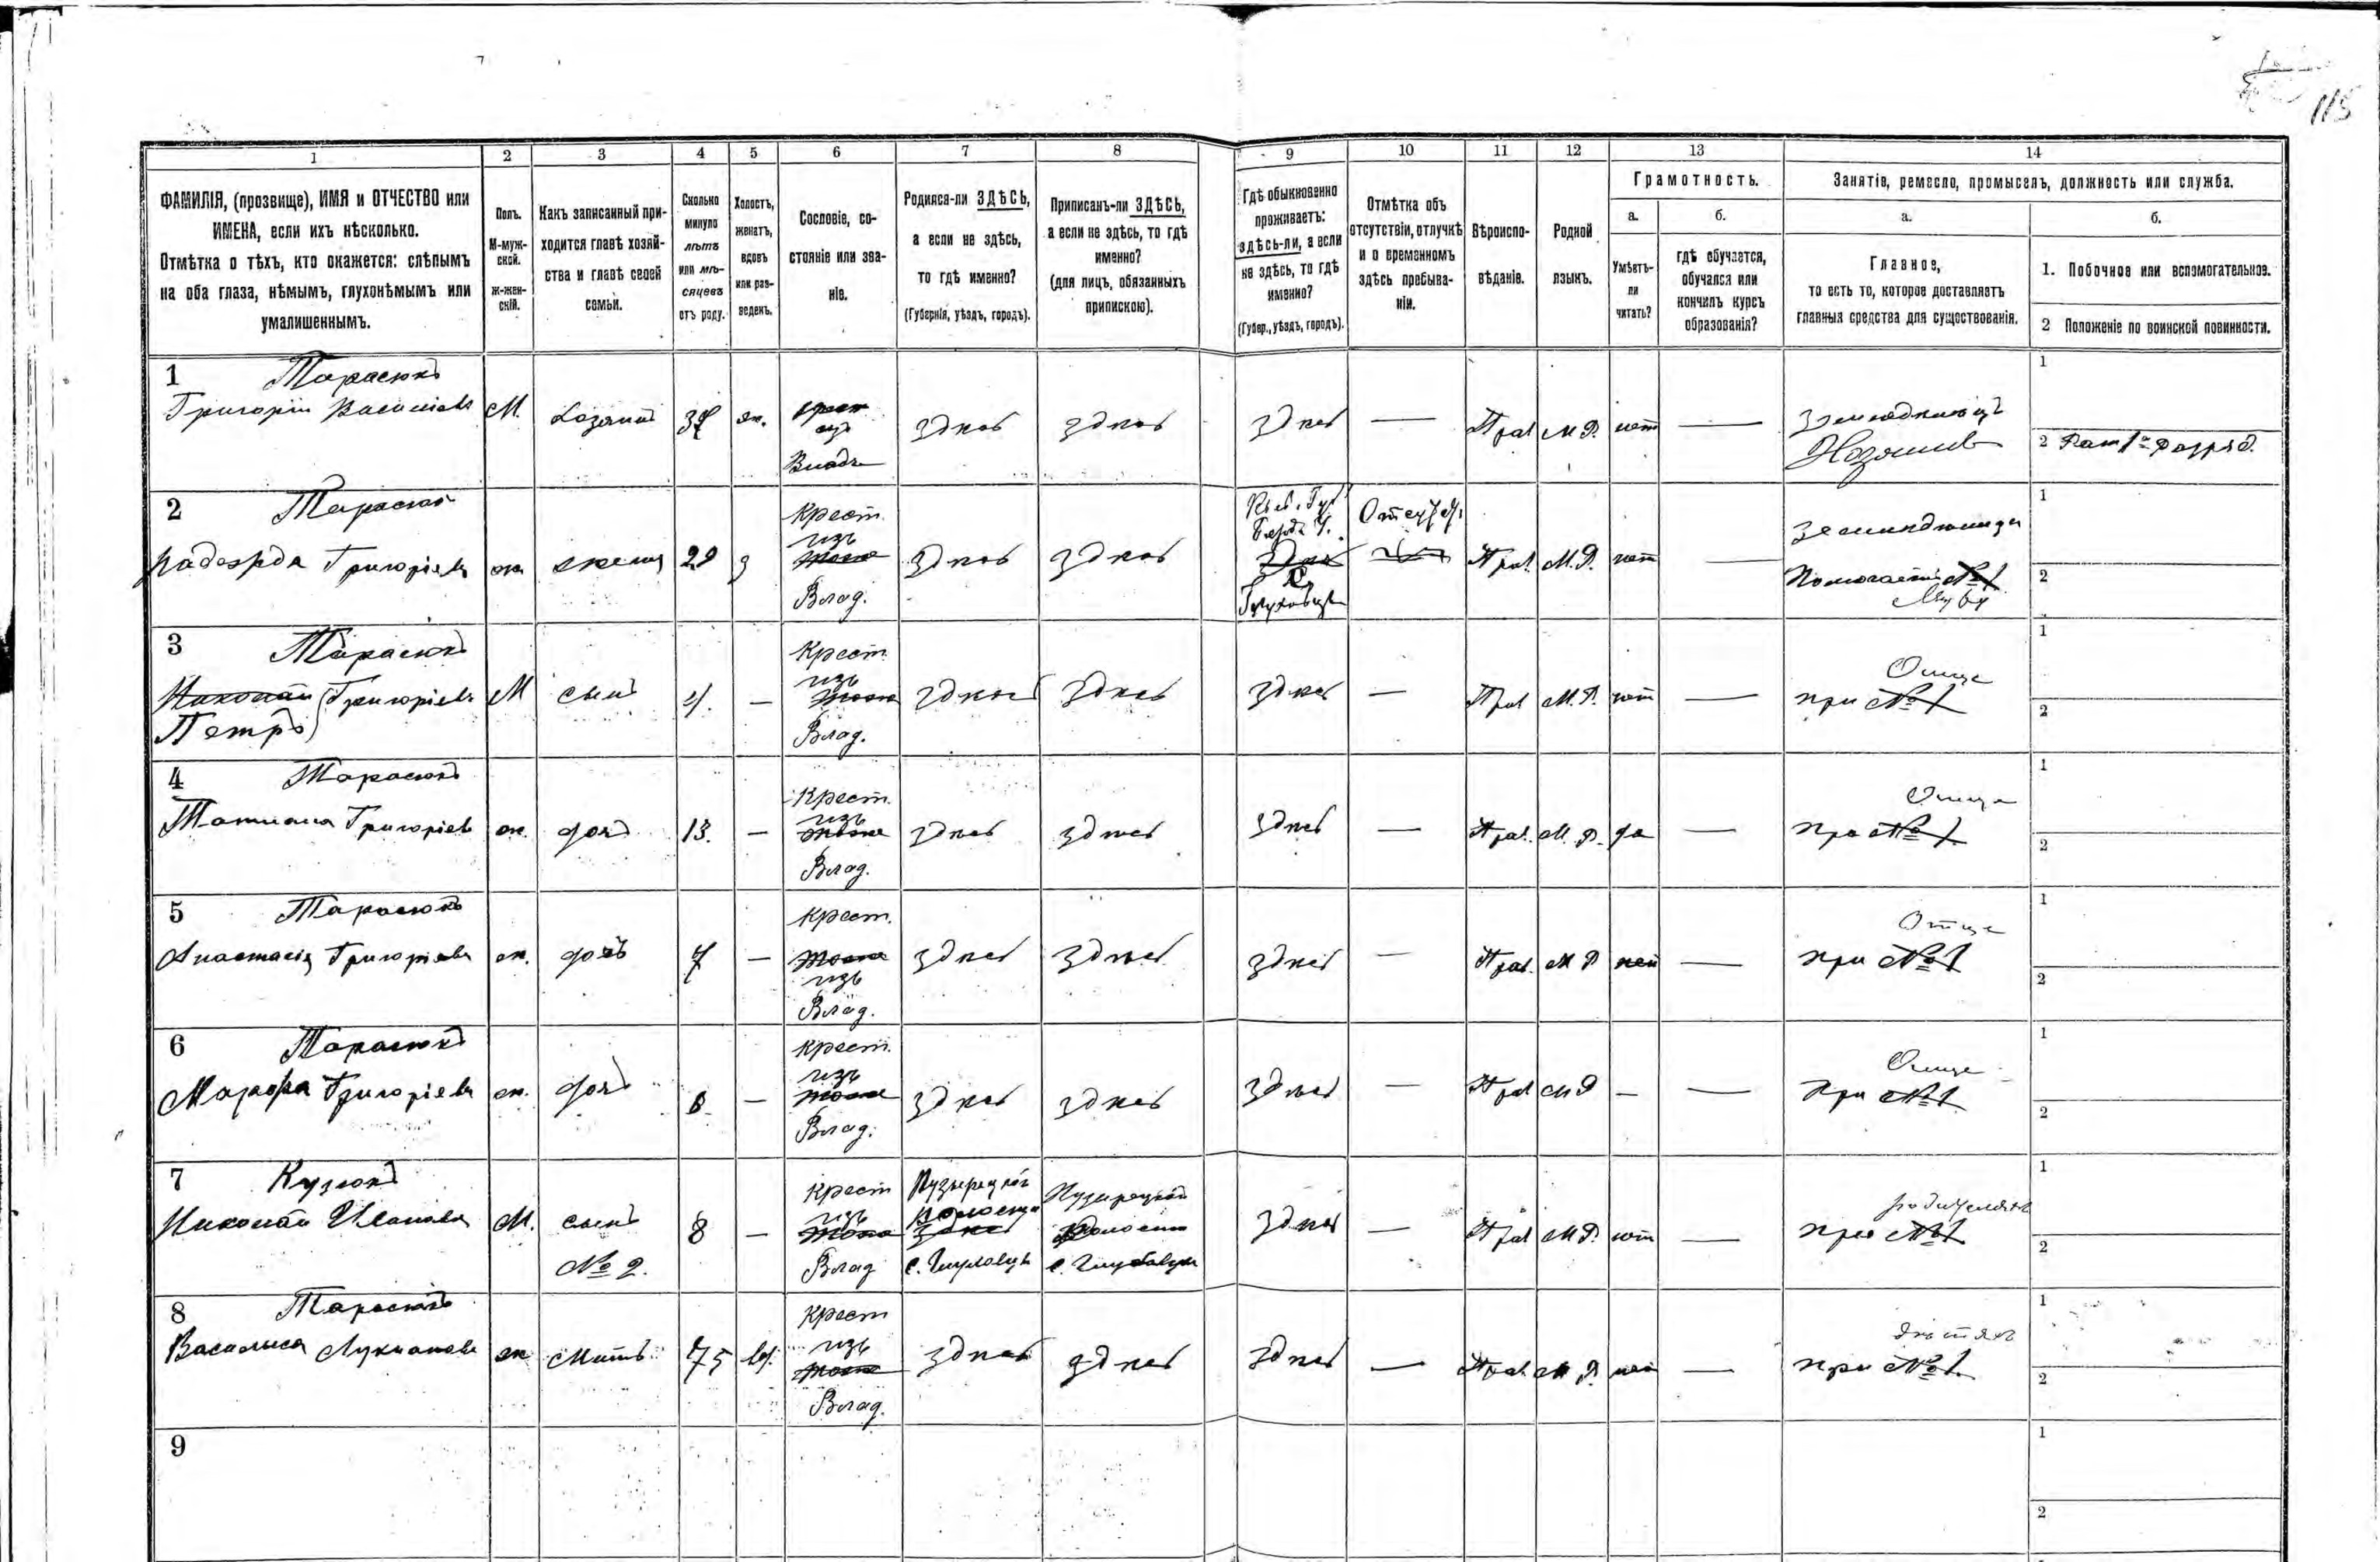 115
1 2 3 4 5 6 7 8 9 10 11 12 13 14
ФАМИЛІЯ, (прозвище), ИМЯ и ОТЧЕСТВО или
ИМЕНА, если ихъ нѣсколько.
Отмѣтка о тѣхъ, кто окажется: слѣпымъ
на оба глаза, нѣмымъ, глухонѣмымъ или
умалишеннымъ.
Полъ.
М-муж-
ской.
ж-жен-
скій.
Какъ записанный при-
ходится главѣ хозяй-
ства и главѣ своей
семьи.
Сколько
минуло
лѣтъ
или мѣ-
сяцевъ
отъ роду.
Холостъ,
женатъ,
вдовъ
или раз-
веденъ.
Сословіе, со-
стояніе или зва-
ніе.
Родился-ли ЗДѢСЬ,
а если не здѣсь,
то гдѣ именно?
(Губернія, уѣздъ, городъ).
Приписанъ-ли ЗДѢСЬ,
а если не здѣсь, то гдѣ
именно?
(для лицъ, обязанныхъ
припискою).
Гдѣ обыкновенно
проживаетъ:
здѣсь-ли, а если
не здѣсь, то гдѣ
именно?
(Губер., уѣздъ, городъ).
Отмѣтка объ
отсутствіи, отлучкѣ
и о временномъ
здѣсь пребыва-
ніи.
Вѣроиспо-
вѣданіе.
Родной
языкъ.
Грамотность.
а.
Умѣетъ-
ли
читать?
б.
гдѣ обучается,
обучался или
кончилъ курсъ
образованія?
Занятіе, ремесло, промыселъ, должность или служба.
а.
Главное,
то есть то, которое доставляетъ
главныя средства для существованія.
б.
1. Побочное или вспомогательное.
2 Положеніе по воинской повинности.
1 Тарасюкъ
Григорій М. хозяинъ ж. здѣсь здѣсь здѣсь — Прав М.Р. нет —
Хозяинъ
1
2 Рат 1го разряд.
2 Тарасюкъ
Надежда Григоріева ж жена 29 з
Крест.
изъ
Влад.
здѣсь здѣсь
Прав. М.Р. нет —
Помогаетъ №1
1
2
3 Тарасюкъ
Николай Григоріевъ М сынъ 4. —
Петръ
Крест.
изъ
Влад.
здѣсь здѣсь здѣсь — Прав М.Р. нет —
Отце
при №1
1
2
4 Тарасюкъ
Татиана Григоріев ж. дочь 13. —
Крест.
изъ
Влад.
здѣсь здѣсь здѣсь — Прав. М.Р. да —
Отце
при №1
1
2
5 Тарасюкъ
Анастасія Григоріева ж. дочь 7 —
Крест.
изъ
Влад.
здѣсь здѣсь здѣсь — Прав. М Р нет —
Отце
при №1
1
2
6 Тарасюкъ
Марфа Григоріева ж. дочь —
Крест.
изъ
Влад.
здѣсь здѣсь здѣсь — Прав М Р — —
Отце
при №1
1
2
7 Кузюкъ
Николай Иванова М. сынъ 8 —
№ 2.
Крест
изъ
Влад
волости
здѣсь — Прав М.Р. нет —
родителяхъ
при №1
1
2
8 Тарасюкъ
ж мать 75 вд.
Крест
изъ
Влад.
здѣсь здѣсь здѣсь — Прав. М Р. нет —
дѣтяхъ
при №1.
1
2
9
1
2